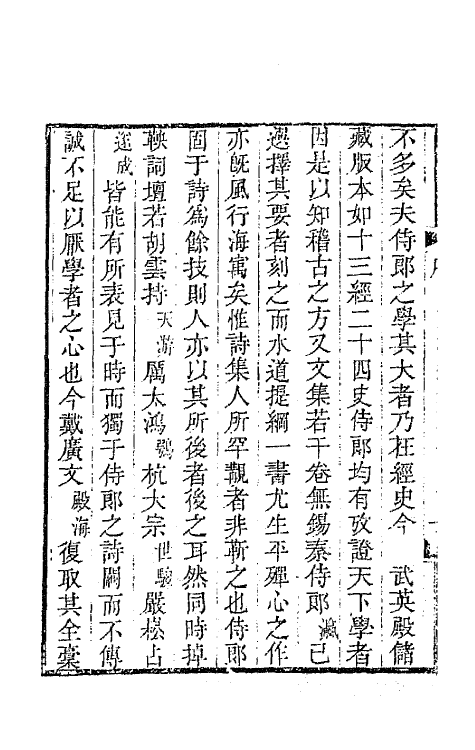 不多矣夫侍郎之學其大者乃在經史今　武英殿儲
藏版本如十三經二十四史侍郎均有攷證天下學者
因是以知稽古之方又文集若干卷無錫秦侍郎瀛已
選擇其要者刻之而水道提綱一書尤生平殫心之作
亦旣風行海寓矣惟詩集人所罕覯者非靳之也侍郎
固于詩爲餘技則人亦以其所後者後之耳然同時掉
鞅詞壇若胡雲持天游厲太鴻鶚杭大宗世駿嚴崧占
遂成皆能有所表見于時而獨于侍郎之詩闕而不傳
誠不足以厭學者之心也今戴廣文殿海復取其全藁